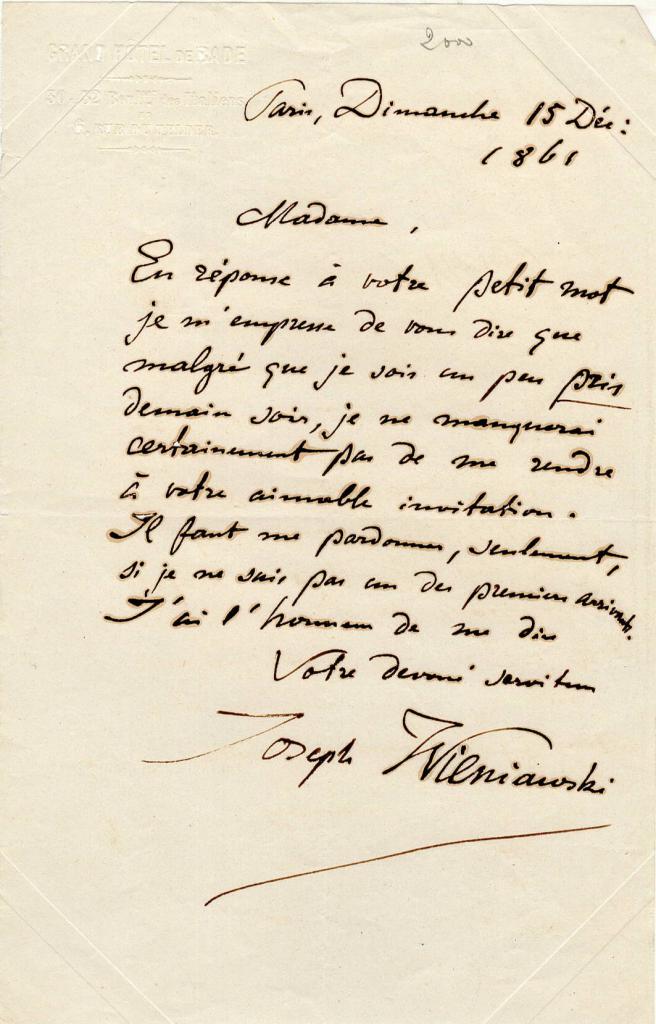 2000
GRAND HÔTEL DE BADE
30-32 Boul.d des Italiens
6, RUE DU HELDER.
Paris, Dimanche 15 Déc:
1861
Madame,
En réponse à votre petit mot
je m'empresse de vous dire que
malgré que je sois un peu pris
demain soir, je ne manquerai
certainement pas de me rendre
à votre aimable invitation.
Il faut me pardonner, seulement,
si je ne suis pas un des premiers arrivants.
J'ai l'honneur de me dire
Votre dévoué serviteur
Joseph Wieniawski